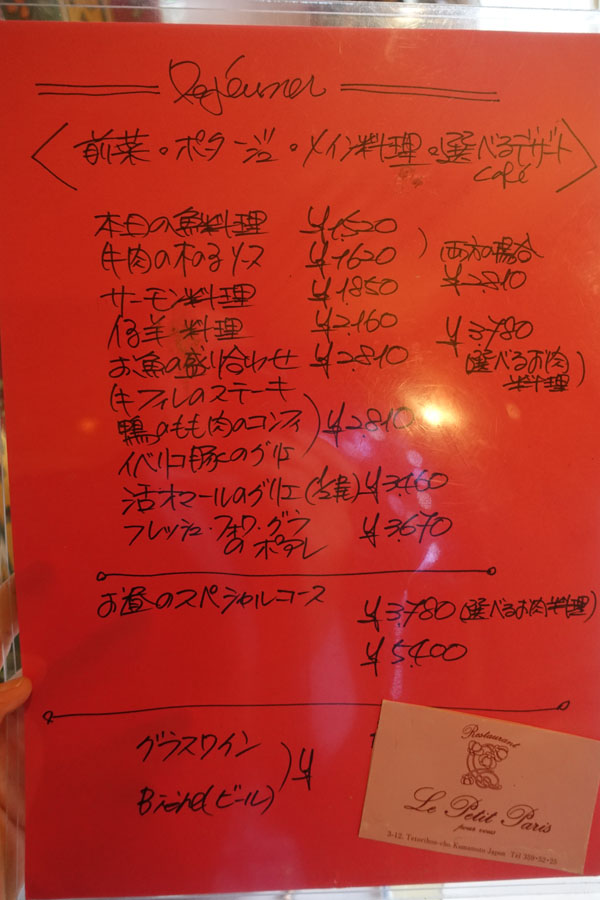 Dejéuner
〈前菜・ポタージュ・メイン料理・選べるデザート〉
Café
本日の魚料理 ¥1,520
牛肉の木の子ソース ¥1620
両方の場合
¥2.810
サーモン料理 ¥1850
仔羊料理 ¥2.160
¥3.780
お魚の盛り合わせ ¥2.810
(選べるお肉料理)
牛フィレのステーキ
鴨のもも肉のコンフィ ¥2.810
イベリコ豚のグリエ
活オマールのグリエ(1/2尾) ¥3.460
フレッシュ・フォワ・グラ
のポワレ ¥3.670
お昼のスペシャルコース
¥3.780(選べるお肉料理)
¥5.400
グラスワイン
(ビール)
¥
Restaurant
Le Petit Paris
pour vous